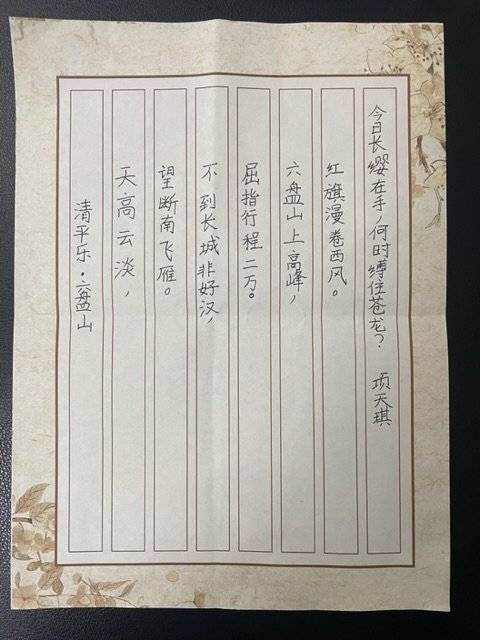 清平乐·六盘山
天高云淡，
望断南飞雁。
不到长城非好汉，
屈指行程二万。
六盘山上高峰，
红旗漫卷西风。
今日长缨在手，何时缚住苍龙？ 项天琪